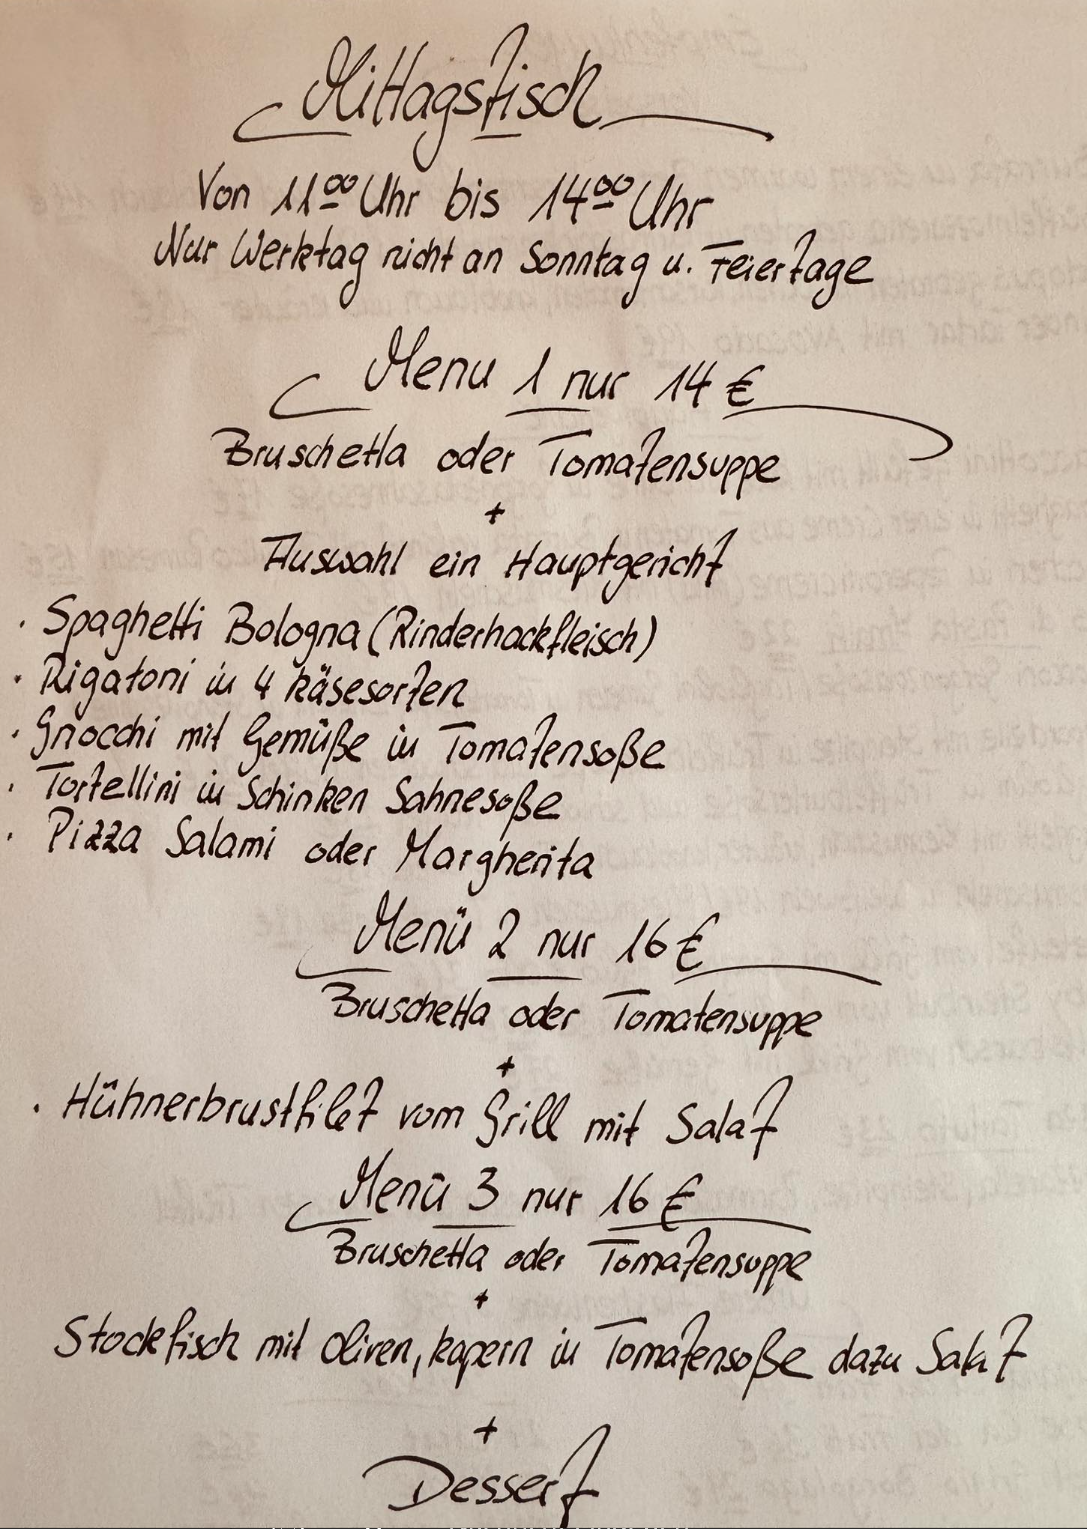 Mittagstisch
Von 11⁰⁰ Uhr bis 14⁰⁰ Uhr
Nur Werktag nicht an Sonntag u. Feiertage
Menu 1 nur 14 €
Bruschetta oder Tomatensuppe
+
Auswahl ein Hauptgericht
· Spaghetti Bologna (Rinderhackfleisch)
· Rigatoni in 4 käsesorten
· Gnocchi mit Gemüße in Tomatensoße
· Tortellini in Schinken Sahnesoße
· Pizza Salami oder Margherita
Menü 2 nur 16 €
Bruschetta oder Tomatensuppe
+
· Hühnerbrustfilet vom Grill mit Salat
Menü 3 nur 16 €
Bruschetta oder Tomatensuppe
+
Stockfisch mit Oliven, kapern in Tomatensoße dazu Salat
+
Dessert